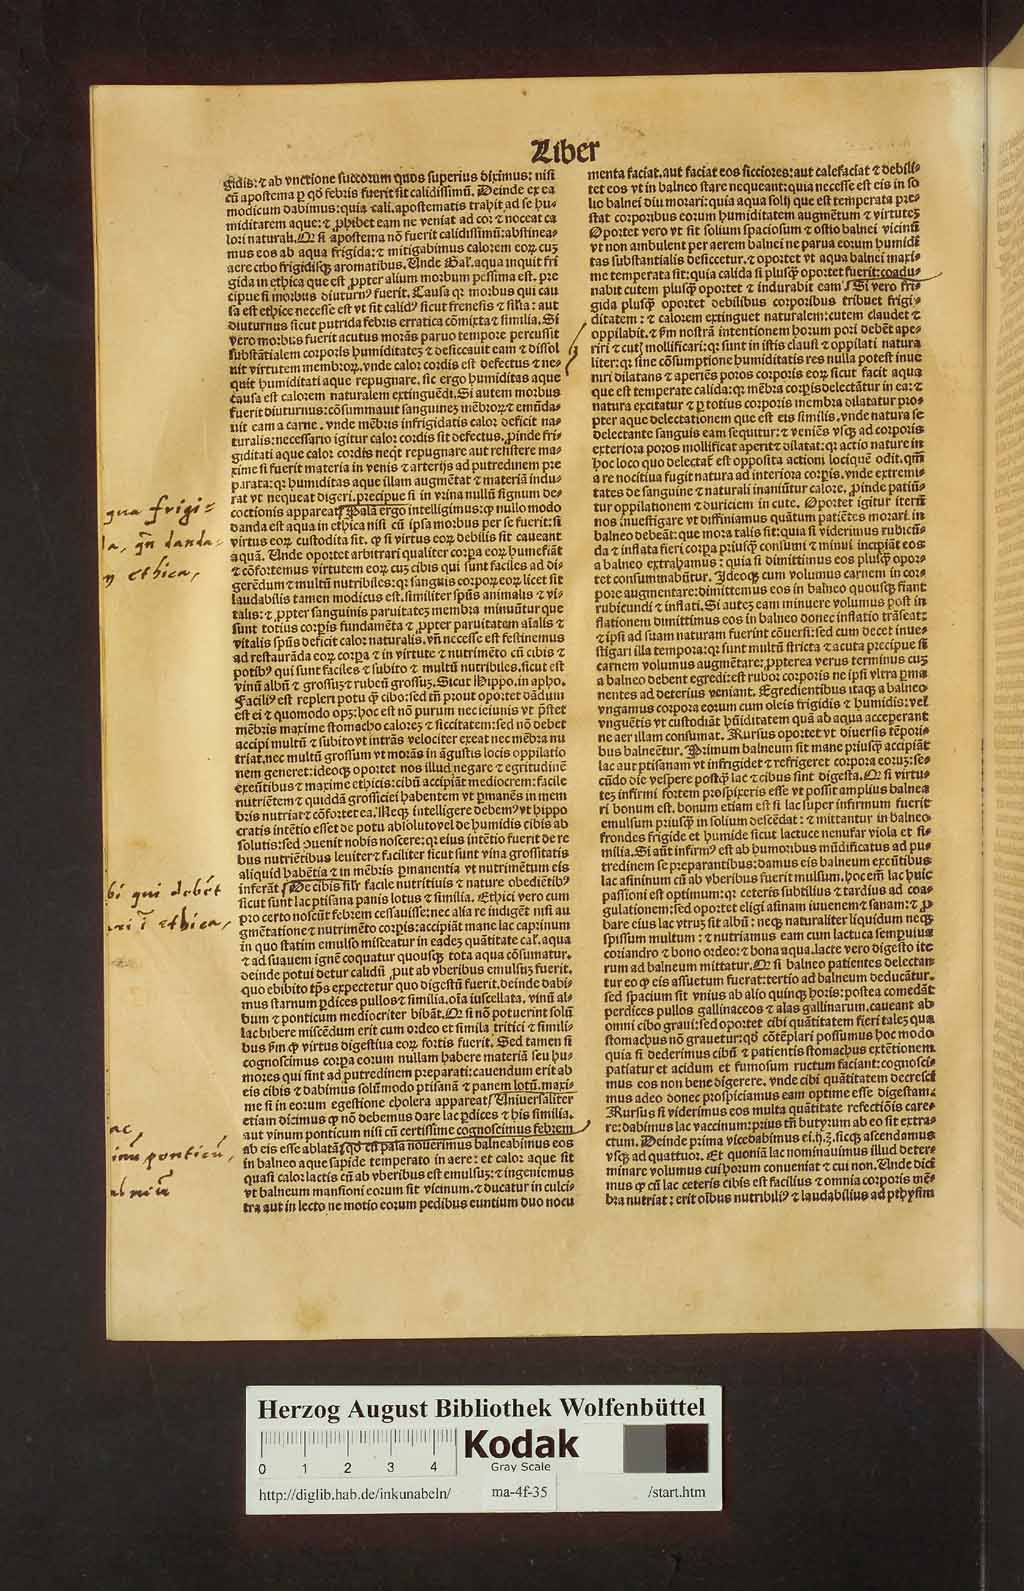 Liber
gidis: ⁊ ab vnctione succorum quos superius diximus: nisi
cū apostema ꝑ qd̄ febris fuerit sit calidissimū. Deinde ex ea
modicum dabimus: quia cali. apostematis trahit ad se hu-
miditatem aque: ⁊ ꝓhibet eam ne veniat ad cor ⁊ noceat ca
lori naturali. Qr̄ si apostema nō fuerit calidissimū: abstinea-
mus eos ab aqua frigida: ⁊ mitigabimus calorem eoꝝ cuꝫ
aere cibo frigidisqꝫ aromatibus. Unde Gal̓. aqua inquit fri
gida in ethica que est ꝓpter alium morbum pessima est. pre
cipue si morbus diuturnꝰ fuerit. Causa qꝛ morbus qui cau
sa est ethice necesse est vt sit calidꝰ sicut frenesis ⁊ sil̓ia: aut
diuturnus sicut putrida febris erratica cōmixta ⁊ similia. Si
vero morbus fuerit acutus morās paruo tempore percussit
substātialem corporis humiditateꝫ ⁊ desiccauit eam ⁊ dissol
uit virtutem membroꝝ. vnde calor cordis est defectus ⁊ ne-
quit humiditati aque repugnare. sic ergo humiditas aque
causa est calorem naturalem extinguēdi. Si autem morbus
fuerit diuturnus: cōsummauit sanguineꝫ mēbroꝝ ⁊ emūda-
uit eam a carne. vnde mēbris infrigidatis calor deficit na-
turalis: necessario igitur calor cordis sit defectus. ꝓinde fri-
giditati aque calor cordis neqͥt repugnare aut resistere ma-
xime si fuerit materia in venis ⁊ arterijs ad putredinem pre
parata: qꝛ humiditas aque illam augmētat ⁊ materiā indu-
rat vt nequeat digeri. precipue si in vrina nullū signum de-
coctionis appareat. Palā ergo intelligimus: ꝙ nullo modo
danda est aqua in ethica nisi cū ipsa morbus per se fuerit: si
virtus eoꝝ custodita sit. ꝙ si virtus eoꝝ debilis sit caueant
aquā. Unde oportet arbitrari qualiter corpa eoꝝ humefiāt
⁊ cōfortemus virtutem eoꝝ cuꝫ cibis qui sunt faciles ad di-
gerēdum ⁊ multū nutribiles: qꝛ sanguis corpoꝝ eoꝝ licet sit
laudabilis tamen modicus est. similiter spūs animalis ⁊ vi-
talis: ⁊ ꝓpter sanguinis paruitateꝫ membra minuūtur que
sunt totius corꝑis fundamēta ⁊ ꝓpter paruitatem aīalis ⁊
vitalis spūs deficit calor naturalis. vn̄ necesse est festinemus
ad restaurāda eoꝝ corꝑa ⁊ in virtute ⁊ nutrimēto cū cibis ⁊
potibꝰ qui sunt faciles ⁊ subito ⁊ multū nutribiles. sicut est
vinū albū ⁊ grossuꝫ ⁊ rubeū grossuꝫ. Sicut Hippo. in apho.
Faciliꝰ est repleri potu ꝙ cibo: sed tn̄ prout oportet dādum
est ei ⁊ quomodo opꝫ: hoc est nō purum nec ieiunis vt p̄stet
mēbris maxime stomacho caloreꝫ ⁊ siccitatem: sed nō debet
accipi multū ⁊ subito vt intrās velociter exeat nec mēbra nu
triat. nec multū grossum vt morās in āgustis locis oppilatio
nem generet: ideoqꝫ oportet nos illud negare ⁊ egritudinē
exeūtibus ⁊ maxime ethicis: cibū accipiāt mediocrem: facile
nutriētem ⁊ quiddā grossiciei habentem vt ꝑmanēs in mem
bris nutriat ⁊ cōfortet ea. Neqꝫ intelligere debemꝰ vt hippo
cratis intētio esset de potu absoluto vel de humidis cibis ab
solutis: sed ꝯuenit nobis noscere: qꝛ eius intētio fuerit de re
bus nutriētibus leuiter ⁊ faciliter sicut sunt vina grossitatis
aliquid habētia ⁊ in mēbris ꝑmanentia vt nutrimētum eis
inferāt. De cibis sil̓r facile nutritiuis ⁊ nature obediētibꝰ
sicut sunt lac ptisana panis lotus ⁊ similia. Ethici vero cum
pro certo noscūt febrem cessauisse: nec alia re indigēt nisi au
gmētatione ⁊ nutrimēto corꝑis: accipiāt mane lac cap̄rinum
in quo statim emulso misceatur in eadeꝫ quātitate cal̓. aqua
⁊ ad suauem ignē coquatur quousqꝫ tota aqua cōsumatur.
deinde potui detur calidū ꝓut ab vberibus emulsuꝫ fuerit.
quo ebibito tp̄s expectetur quo digestū fuerit. deinde dabi-
mus starnum ꝑdices pullos ⁊ similia. oīa iuscellata. vinū al-
bum ⁊ ponticum mediocriter bibāt. Qr̄ si nō potuerint solū
lac bibere miscēdum erit cum ordeo ⁊ simila tritici ⁊ simili-
bus ꝑm ꝙ virtus digestiua eoꝝ fortis fuerit. Sed tamen si
cognoscimus corꝑa eorum nullam habere materiā seu hu-
mores qui sint ad putredinem preparati: cauendum erit ab
eis cibis ⁊ dabimus solūmodo ptisanā ⁊ panem lotū. maxi-
me si in eorum egestione cholera appareat. Uniuersaliter
etiam dicimus ꝙ nō debemus dare lac ꝑdices ⁊ his similia.
aut vinum ponticum nisi cū certissime cognoscimus febrem
ab eis esse ablatā. qd̄ est palā nouerimus balneabimus eos
in balneo aque sapide temperato in aere: et calor aque sit
quasi calor lactis cū ab vberibus est emulsuꝫ: ⁊ ingeniemus
vt balneum mansioni eorum sit vicinum. ⁊ ducatur in culci-
tra aut in lecto ne motio eorum pedibus euntium duo nocu
menta faciat. aut faciat eos sicciores: aut calefaciat ⁊ debili-
tet eos vt in balneo stare nequeant: quia necesse est eis in so
lio balnei diu morari: quia aqua solij que est temperata pre-
stat corporibus eorum humiditatem augmētum ⁊ virtuteꝫ
Oportet vero vt sit solium spaciosum ⁊ ostio balnei vicinū
vt non ambulent per aerem balnei ne parua eorum humidi
tas substantialis desiccetur. ⁊ oportet vt aqua balnei maxi-
me temperata sit: quia calida si plusqꝫ oportet fuerit: coadu-
nabit cutem plusqꝫ oportet ⁊ indurabit eam. Si vero fri-
gida plusqꝫ oportet debilibus corporibus tribuet frigi-
ditatem: ⁊ calorem extinguet naturalem: cutem claudet ⁊
oppilabit. ⁊ ꝑm nostrā intentionem horum pori debēt ape-
riri ⁊ cuteꝫ mollificari: qꝛ sunt in istis clausi ⁊ oppilati natura
liter: qꝛ sine cōsumptione humiditatis res nulla potest inue
niri dilatans ⁊ aperiēs poros corporis eoꝝ sicut facit aqua
que est temperate calida: qꝛ mēbra corꝑis delectātur in ea: ⁊
natura excitatur ⁊ ꝑ totius corporis membra dilatatur pro-
pter aque delectationem que est eis similis. vnde natura se
delectante sanguis eam sequitur: ⁊ veniēs vsqꝫ ad corporis
exteriora poros mollificat aperit ⁊ dilatat: qꝛ actio nature in
hoc loco quo delectat̄ est opposita actioni locique odit. qm̄
a re nocitiua fugit natura ad interiora corꝑis. vnde extremi-
tates de sanguine ⁊ naturali inaniūtur calore. ꝓinde patiū-
tur oppilationem ⁊ duriciem in cute. Oportet igitur iterū
nos inuestigare vt diffiniamus quātum patiētes morari in
balneo debeāt: que mora talis sit: quia si viderimus rubicū-
da ⁊ inflata fieri corꝑa priusqꝫ consumi ⁊ minui incipiāt eos
a balneo extrahamus: quia si dimittimus eos plusqꝫ opor-
tet consummabūtur. Ideoqꝫ cum volumus carnem in cor-
pore augmentare: dimittemus eos in balneo quousqꝫ fiant
rubicundi ⁊ inflati. Si auteꝫ eam minuere volumus post in
flationem dimittimus eos in balneo donec inflatio trāseat:
⁊ ipsi ad suam naturam fuerint cōuersi: sed cum decet inue-
stigari illa tempora: qꝛ sunt multū stricta ⁊ acuta precipue si
carnem volumus augmētare: ꝓpterea verus terminus cuꝫ
a balneo debent egredi: est rubor corporis ne ipsi vltra ꝑma
nentes ad deterius veniant. Egredientibus itaqꝫ a balneo
vngamus corpora eorum cum oleis frigidis ⁊ humidis: vel
vnguētis vt custodiāt hūiditatem quā ab aqua acceperant
ne aer illam consumat. Rursus oportet vt diuersis tēpori-
bus balneētur. Primum balneum sit mane priusqꝫ accipiāt
lac aut ptisanam vt infrigidet ⁊ refrigeret corpora eoruꝫ: se-
cūdo die vespere postqꝫ lac ⁊ cibus sint digesta. Qr̄ si virtu-
teꝫ infirmi fortem prospixeris esse vt possit amplius balnea
ri bonum est. bonum etiam est si lac super infirmum fuerit
emulsum priusqꝫ in solium descēdat: ⁊ mittantur in balneo
frondes frigide et humide sicut lactuce nenufar viola et si-
milia. Si aūt infirmꝰ est ab humoribus mūdificatus ad pu-
tredinem se preparantibus: damus eis balneum exeūtibus
lac asininum cū ab vberibus fuerit mulsum. hoc em̄ lac huic
passioni est optimum: qꝛ ceteris subtilius ⁊ tardius ad coa-
gulationem: sed oportet eligi asinam iuuenem ⁊ sanam: ⁊ ꝓ
bare eius lac vtruꝫ sit albū: neqꝫ naturaliter liquidum neqꝫ
spissum multum: ⁊ nutriamus eam cum lactuca semꝑuiua
coriandro ⁊ bono ordeo: ⁊ bona aqua. lacte vero digesto ite
rum ad balneum mittatur. Qr̄ si balneo patientes delectan
tur eo ꝙ eis assuetum fuerat: tertio ad balneum deducātur.
sed spacium sit vnius ab alio quinqꝫ horis: postea comedāt
perdices pullos gallinaceos ⁊ alas gallinarum. caueant ab
omni cibo graui: sed oportet cibi quātitatem fieri taleꝫ qua
stomachus nō grauetur: qd̄ cōtēplari possumus hoc modo
quia si dederimus cibū ⁊ patientis stomachus extētionem
patiatur et acidum et fumosum ructum faciant: cognosci-
mus eos non bene digerere. vnde cibi quātitatem decresci
mus adeo donec prospiciamus eam optime esse digestam.
Rursus si viderimus eos multa quātitate refectiōis care-
re: dabimus lac vaccinum: prius tn̄ butyrum ab eo sit extra-
ctum. Deinde prima vice dabimus ei.
vsqꝫ ad quattuor. Et quoniā lac nominauimus illud deter-
minare volumus cui horum conueniat ⁊ cui non. Unde dici
mus ꝙ cū lac ceteris cibis est facilius ⁊ omnia corporis mē-
bra nutriat: erit oībus nutribiliꝰ ⁊ laudabilius ad pthysim
qua frigi=
da, qn̄ danda
ethica,
qui debēt
ī ethica,
ac,
ponticū,
Herzog August Bibliothek Wolfenbüttel
0 1 2 3 4
Kodak
Gray Scale
http://diglib.hab.de/inkunabeln/ ma-4f-35 /start.htm